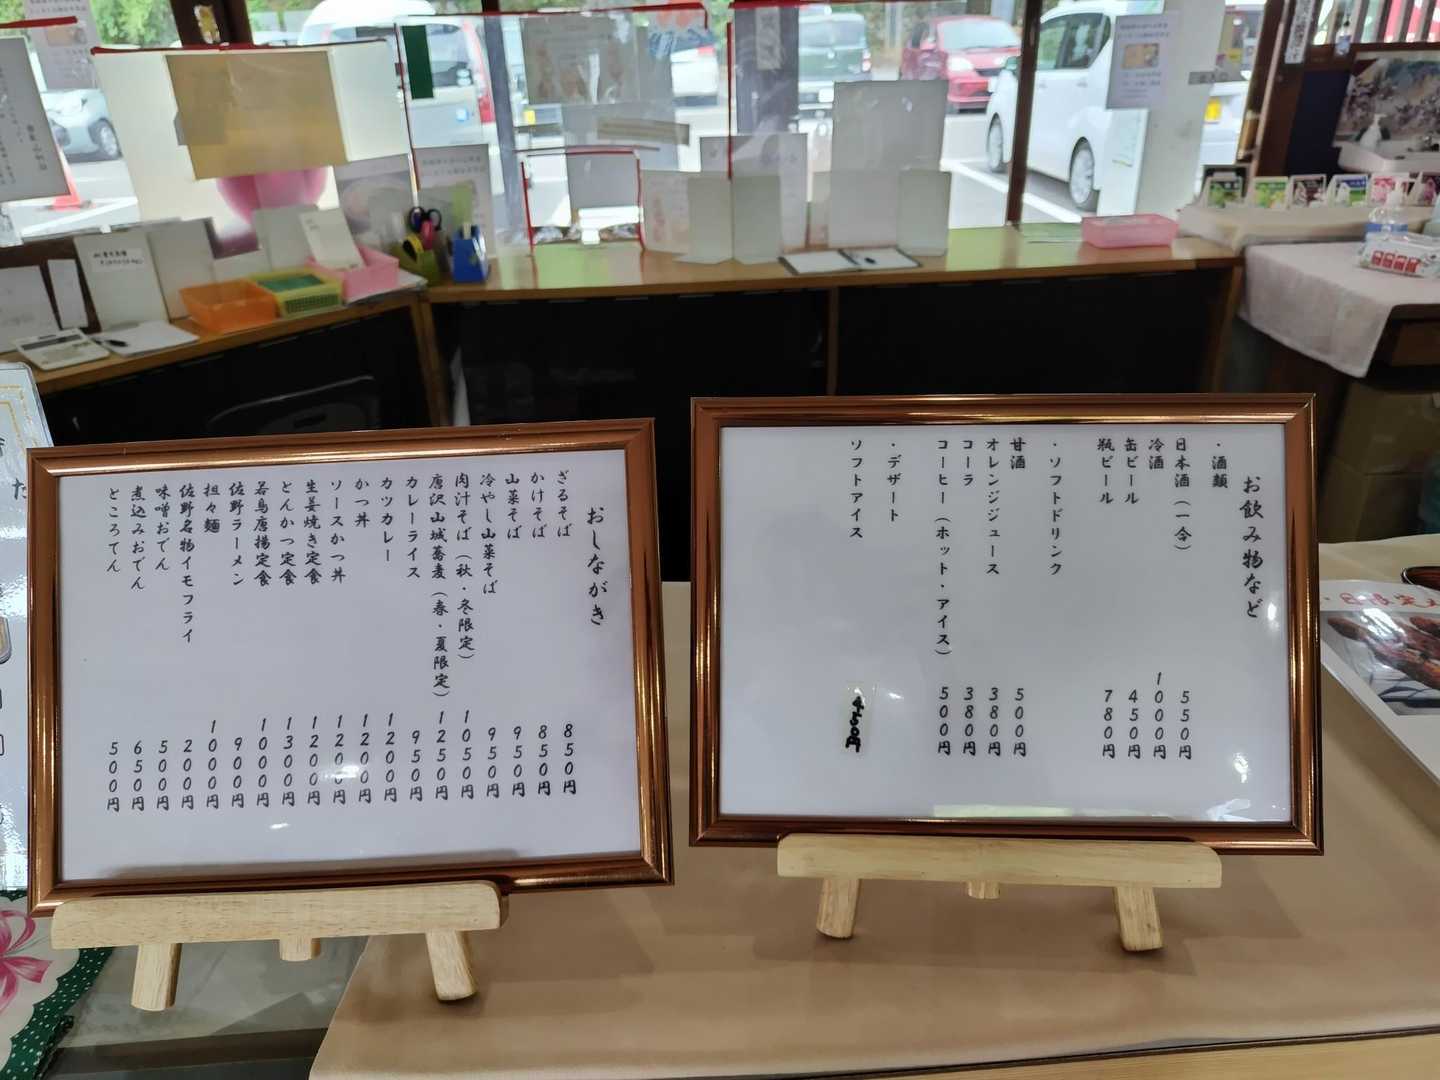 おしながき
ざるそば 850円
かけそば 850円
山菜そば 950円
冷やし山菜そば 950円
肉汁そば（秋・冬限定） 1050円
唐沢山城蕎麦（春・夏限定） 1250円
カレーライス 950円
カツカレー 1200円
かつ丼 1200円
ソースかつ丼 1200円
生姜焼き定食 1200円
とんかつ定食 1300円
若鳥唐揚定食 1000円
佐野ラーメン 900円
担々麺 1000円
佐野名物イモフライ 200円
味噌おでん 500円
煮込みおでん 650円
ところてん 500円
お飲み物など
・酒類
日本酒（一合） 550円
冷酒 1000円
缶ビール 450円
瓶ビール 780円
・ソフトドリンク
甘酒 500円
オレンジジュース 380円
コーラ 380円
コーヒー（ホット・アイス） 500円
・デザート
ソフトアイス 450円